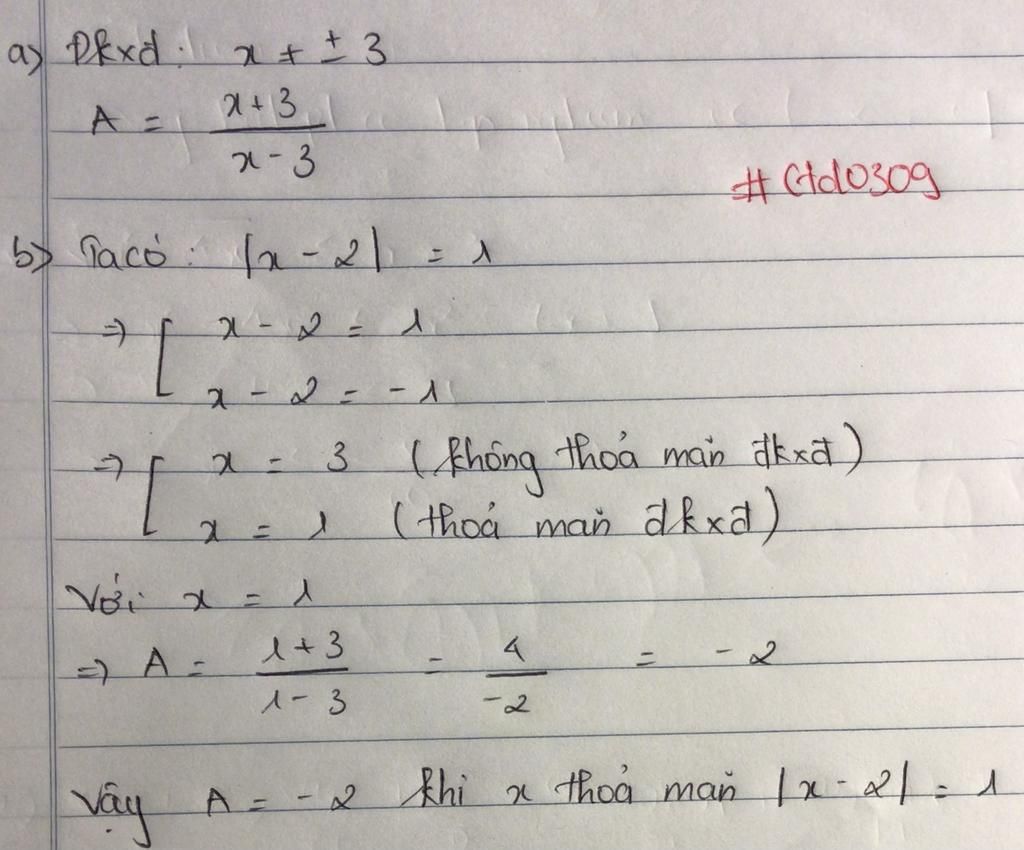 a) Đkxđ: x ≠ ± 3
A = x + 3 / x - 3
# Gtd0309
b) Ta có: |x - 2| = 1
⇒ [ x - 2 = 1
x - 2 = -1
⇒ [ x = 3 (không thoả mãn đkxđ)
x = 1 (thoả mãn đkxđ)
Với x = 1
⇒ A = 1 + 3 / 1 - 3 = 4 / -2 = -2
Vậy A = -2 khi x thoả mãn |x - 2| = 1